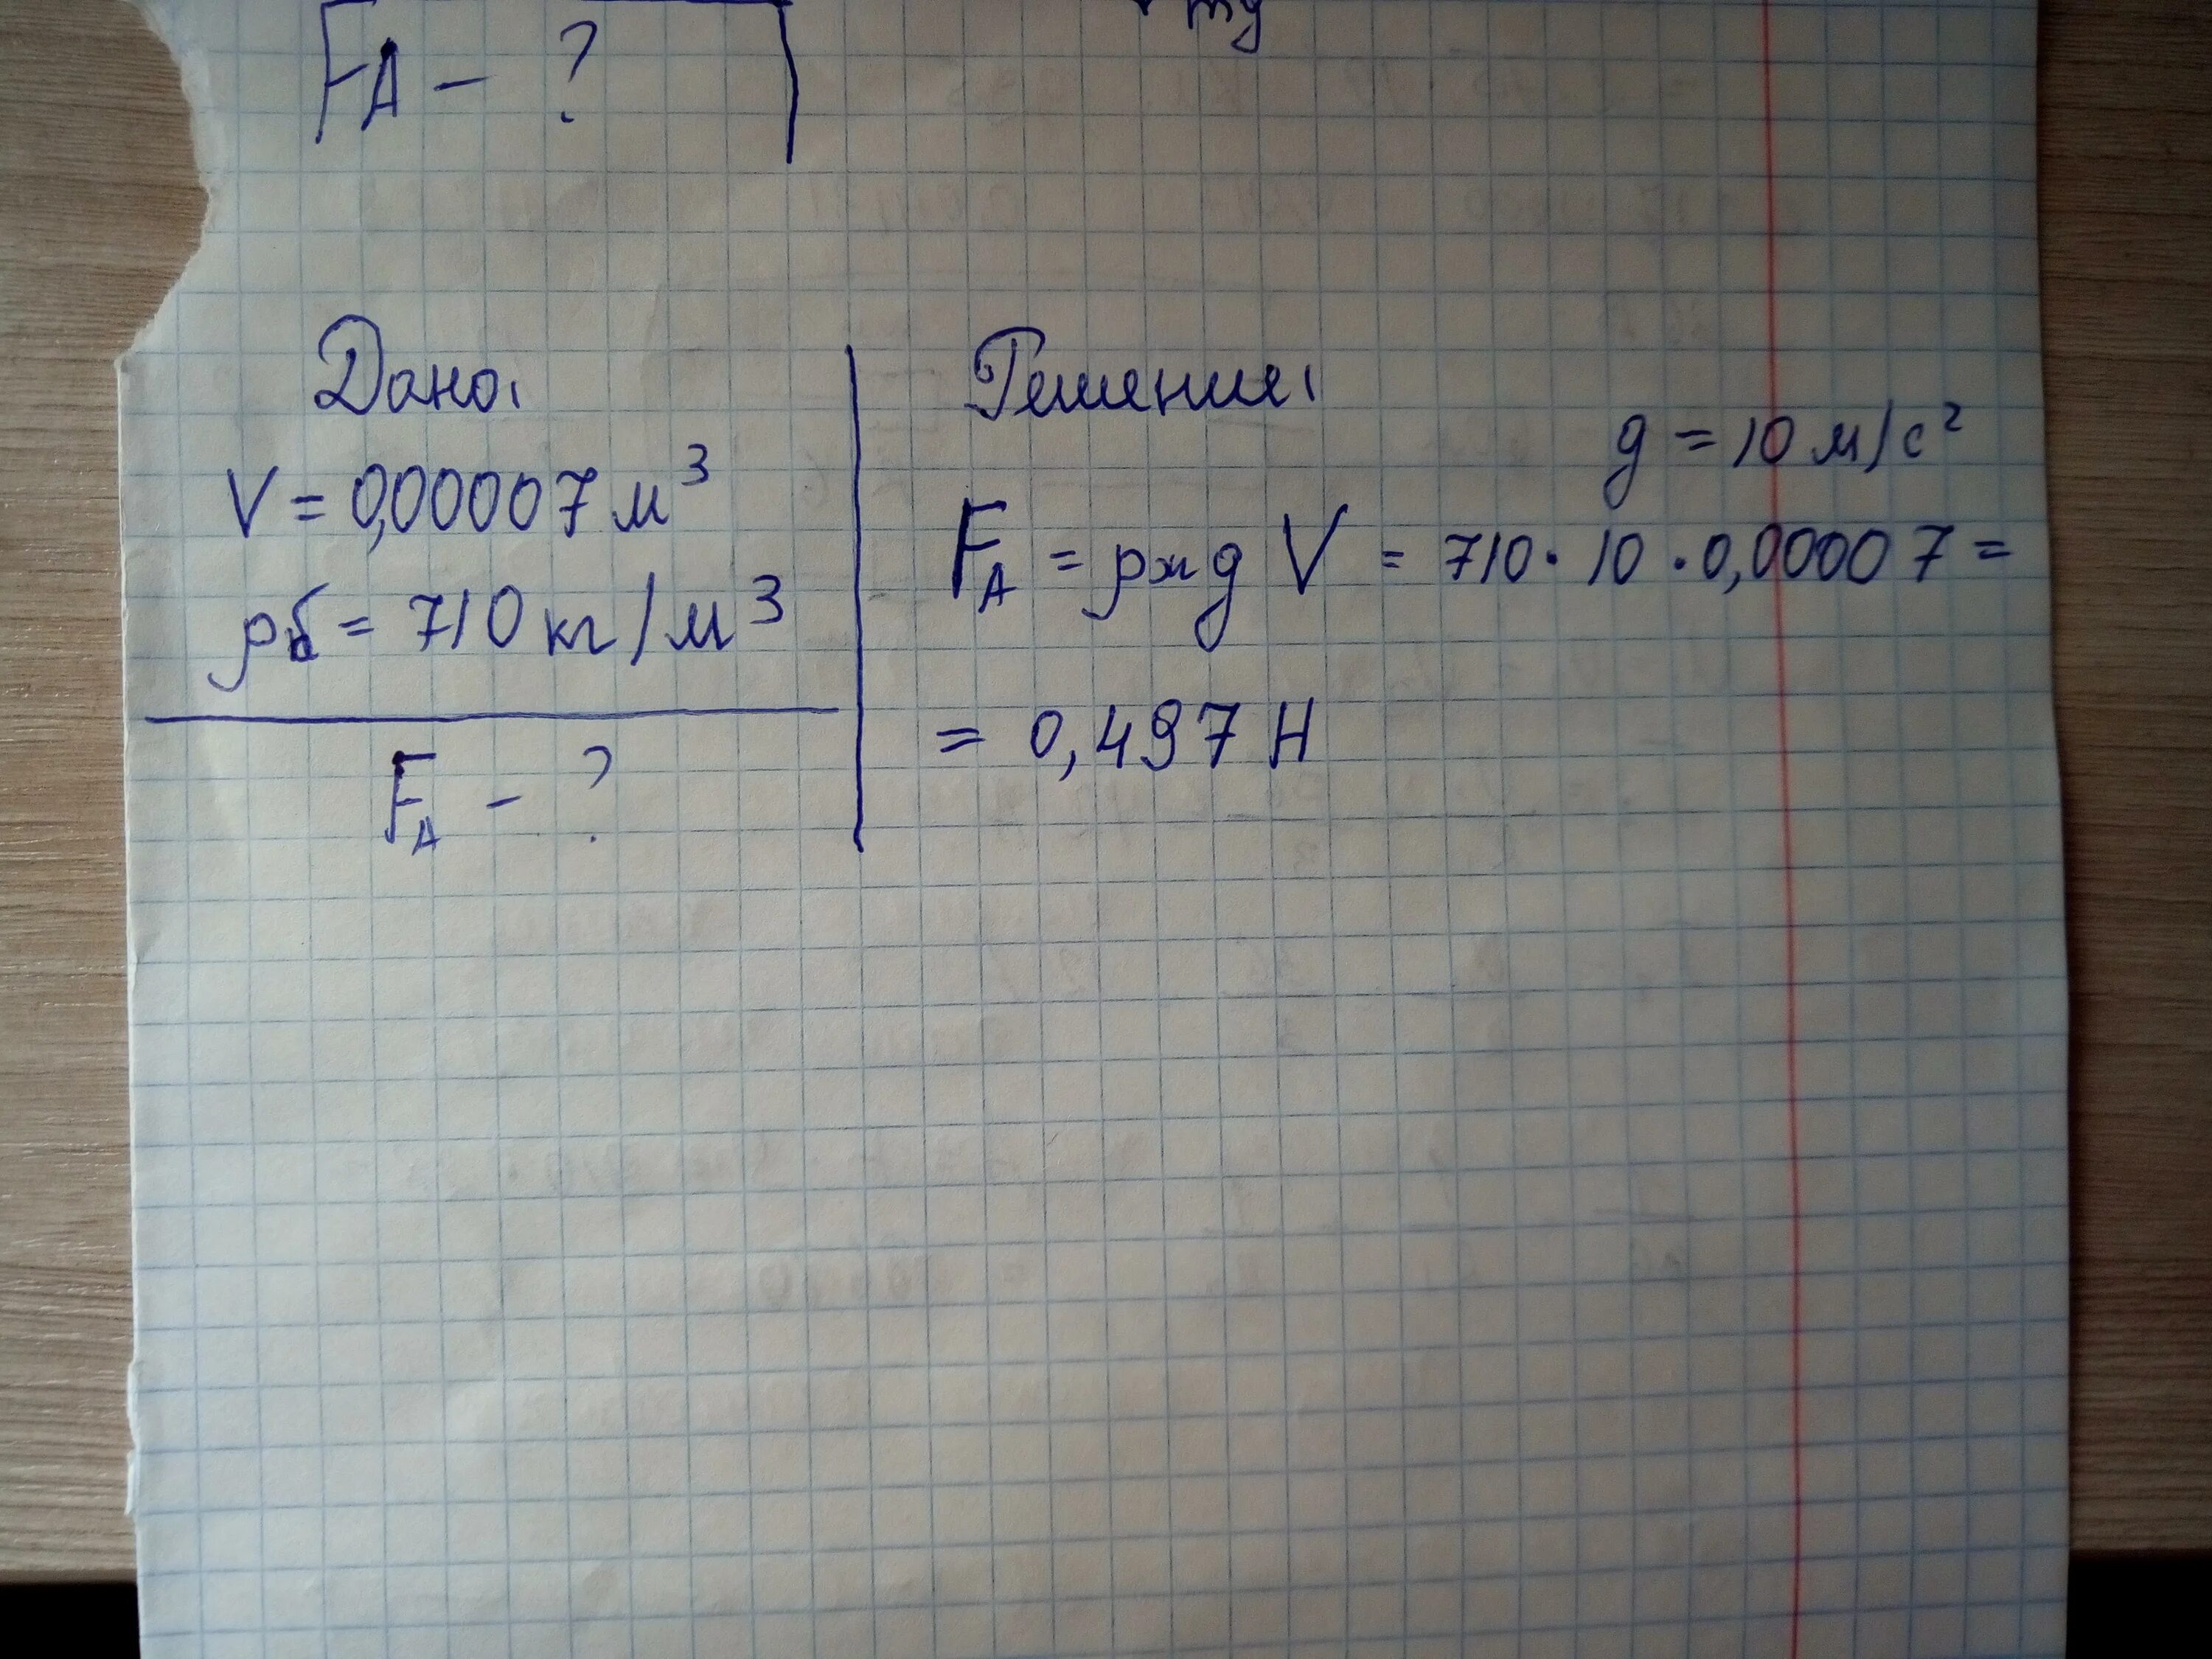 FA - ?
mg
Дано:
V = 0,00007 м³
ρб = 710 кг/м³
FA - ?
Решение:
g = 10 м/с²
FA = ρж g V = 710 · 10 · 0,00007 =
= 0,497 Н